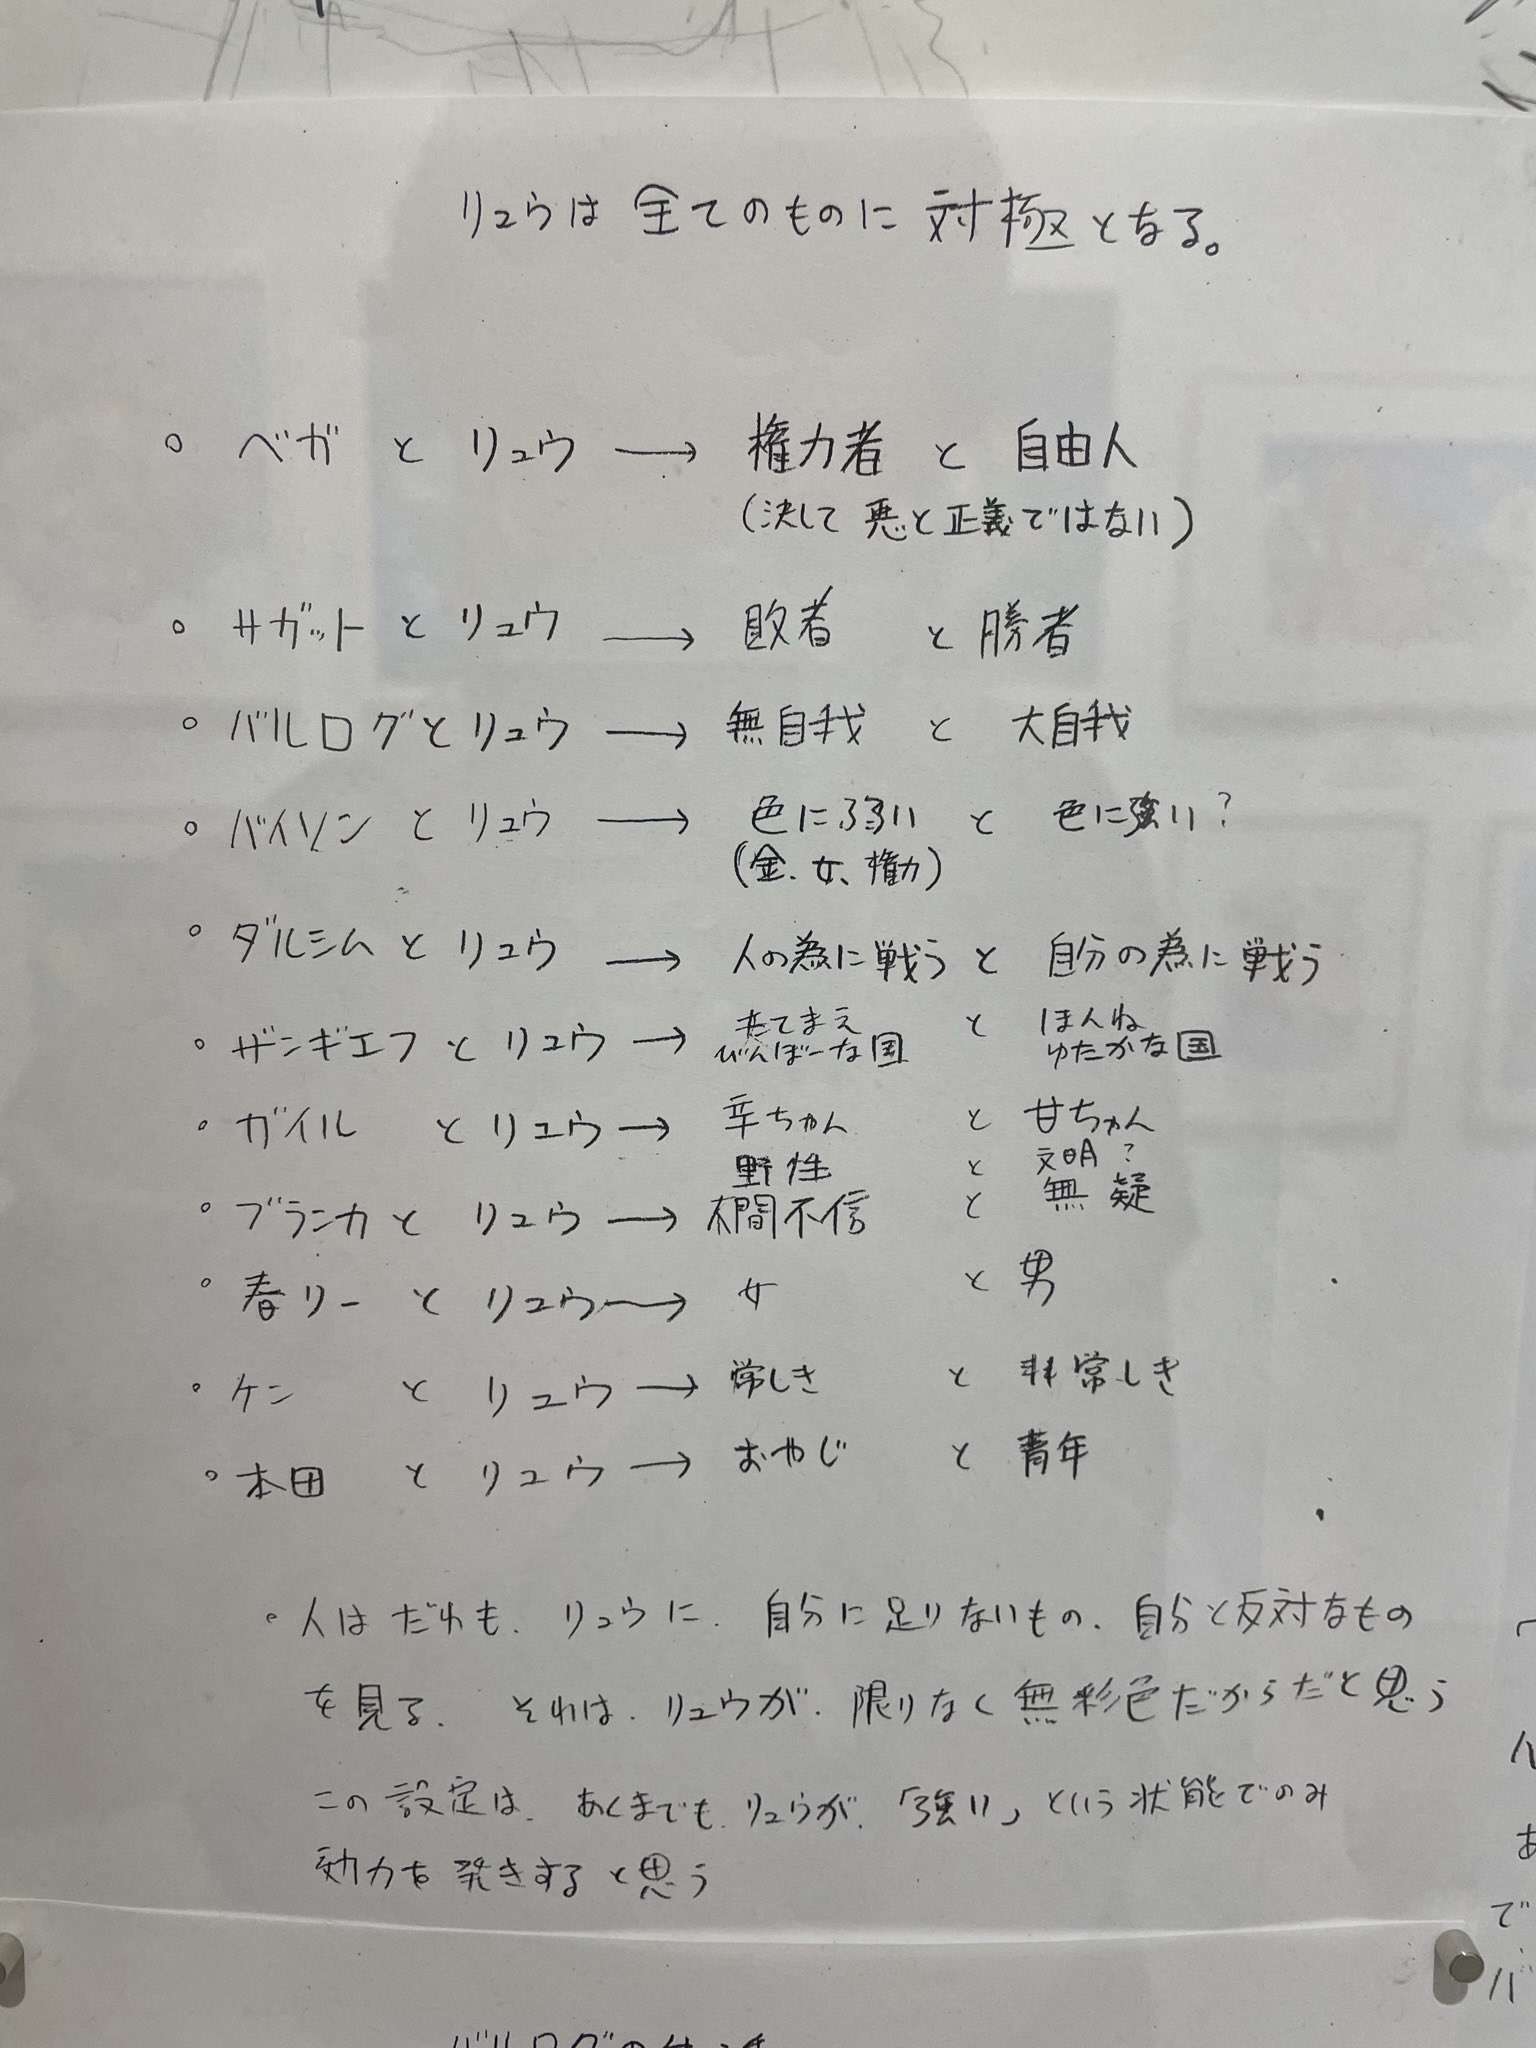 リュウは 全てのものに 対極となる。
○ ベガ と リュウ → 権力者 と 自由人
(決して 悪と正義ではない)
○ サガット と リュウ → 敗者 と 勝者
○ バルログとリュウ → 無自我 と 大自我
○ バイソン と リュウ → 色に弱い と 色に強い?
(金、女、権力)
○ ダルシムとリュウ → 人の為に戦う と 自分の為に戦う
○ ザンギエフとリュウ → たてまえ と ほんね
びんぼーな国 ゆたかな国
○ ガイル とリュウ → 辛ちゃん と 甘ちゃん
野性 と 文明?
○ ブランカと リュウ → 人間不信 と 無疑
○ 春リー と リュウ → 女 と 男
・ケン と リュウ → 常しき と 非常しき
○ 本田 と リュウ → おやじ と 青年
・人はだれも、リュウに、自分に足りないもの、自分と反対なもの
を見る、それは、リュウが、限りなく無彩色だからだと思う
この設定は、あくまでも、リュウが、「強い」という状態でのみ
効力を発きすると思う